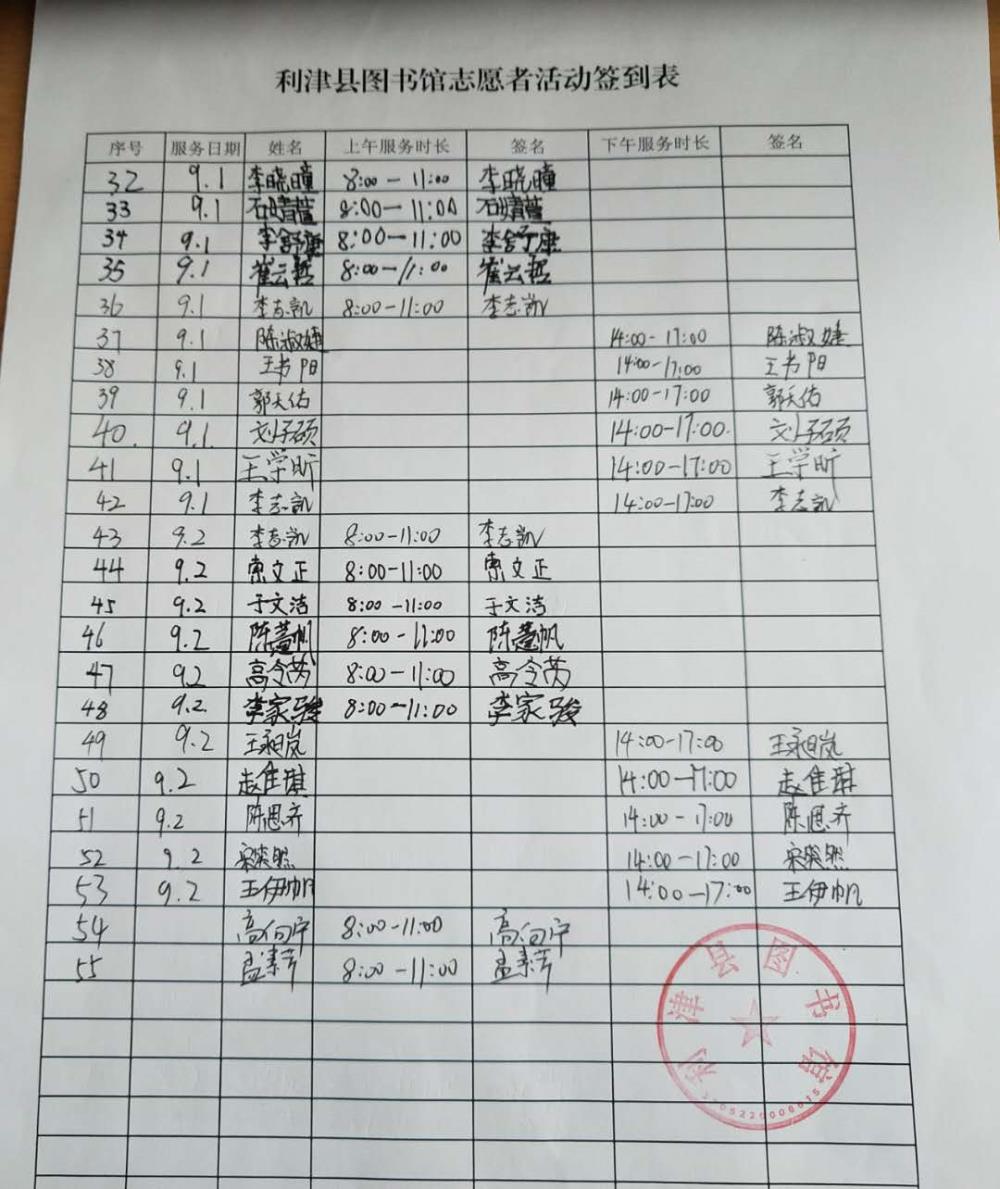 利津县图书馆志愿者活动签到表
序号 服务日期 姓名 上午服务时长 签名 下午服务时长 签名
32 9.1 李晓瞳 8:00-11:00 李晓瞳
33 9.1 8:00-11:00
34 9.1 李舒康 8:00-11:00 李舒康
35 9.1 崔云哲 8:00-11:00 崔云哲
36 9.1 李志凯 8:00-11:00 李志凯
37 9.1 陈淑婕 14:00-17:00 陈淑婕
38 9.1 王书阳 14:00-17:00 王书阳
39 9.1 郭天佑 14:00-17:00 郭天佑
40. 9.1. 刘子硕 14:00-17:00. 刘子硕
41 9.1 王学昕 14:00-17:00 王学昕
42 9.1 李志凯 14:00-17:00 李志凯
43 9.2 李志凯 8:00-11:00 李志凯
44 9.2 索文正 8:00-11:00 索文正
45 9.2 于文洁 8:00-11:00 于文洁
46 9.2 8:00-11:00
47 9.2 高令芮 8:00-11:00 高令芮
48 9.2. 李家骏 8:00-11:00 李家骏
49 9.2 14:00-17:00
50 9.2 赵佳琪 14:00-17:00 赵佳琪
51 9.2 陈思齐 14:00-17:00 陈思齐
52 9.2 14:00-17:00
53 9.2 王伊帆 14:00-17:00 王伊帆
54 高向宁 8:00-11:00 高向宁
55 8:00-11:00
利津县图书馆